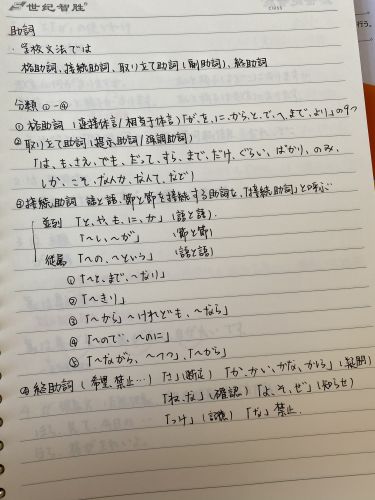 世纪智胜
class
行う。
助詞
・学校文法では
格助詞、接続助詞、取り立て助詞(副助詞)、終助詞
分類 ①-④
①格助詞 (連接体言/相互于体言)「が、を、に、から、と、で、へ、まで、より」の9つ
②取り立て助詞(提示助詞/強調助詞)
「は、も、さえ、でも、だって、すら、まで、だけ、ぐらい、ばかり、のみ、
しか、こそ、なんか、なんて、など」
③接続助詞 語と語、節と節を接続する助詞を、「接続助詞」と呼ぶ
並列 「と、や、も、に、か」 (語と語).
「〜し、〜が」 (節と節)
従属 「〜の、〜という」 (語と語)
①「〜と、まで、〜なり」
②「〜きり」
③「〜から」〜けれども、〜なら」
④「〜ので、〜のに」
⑤「〜ながら、〜つつ」、「〜がら」
④終助詞 (希望、禁止…)「さ」(断定) 「か、かい、かな、かしら」(疑問)
「ね、な」(確認) 「よ、ぞ、ぜ」(知らせ)
「っけ」(記憶) 「な」禁止.